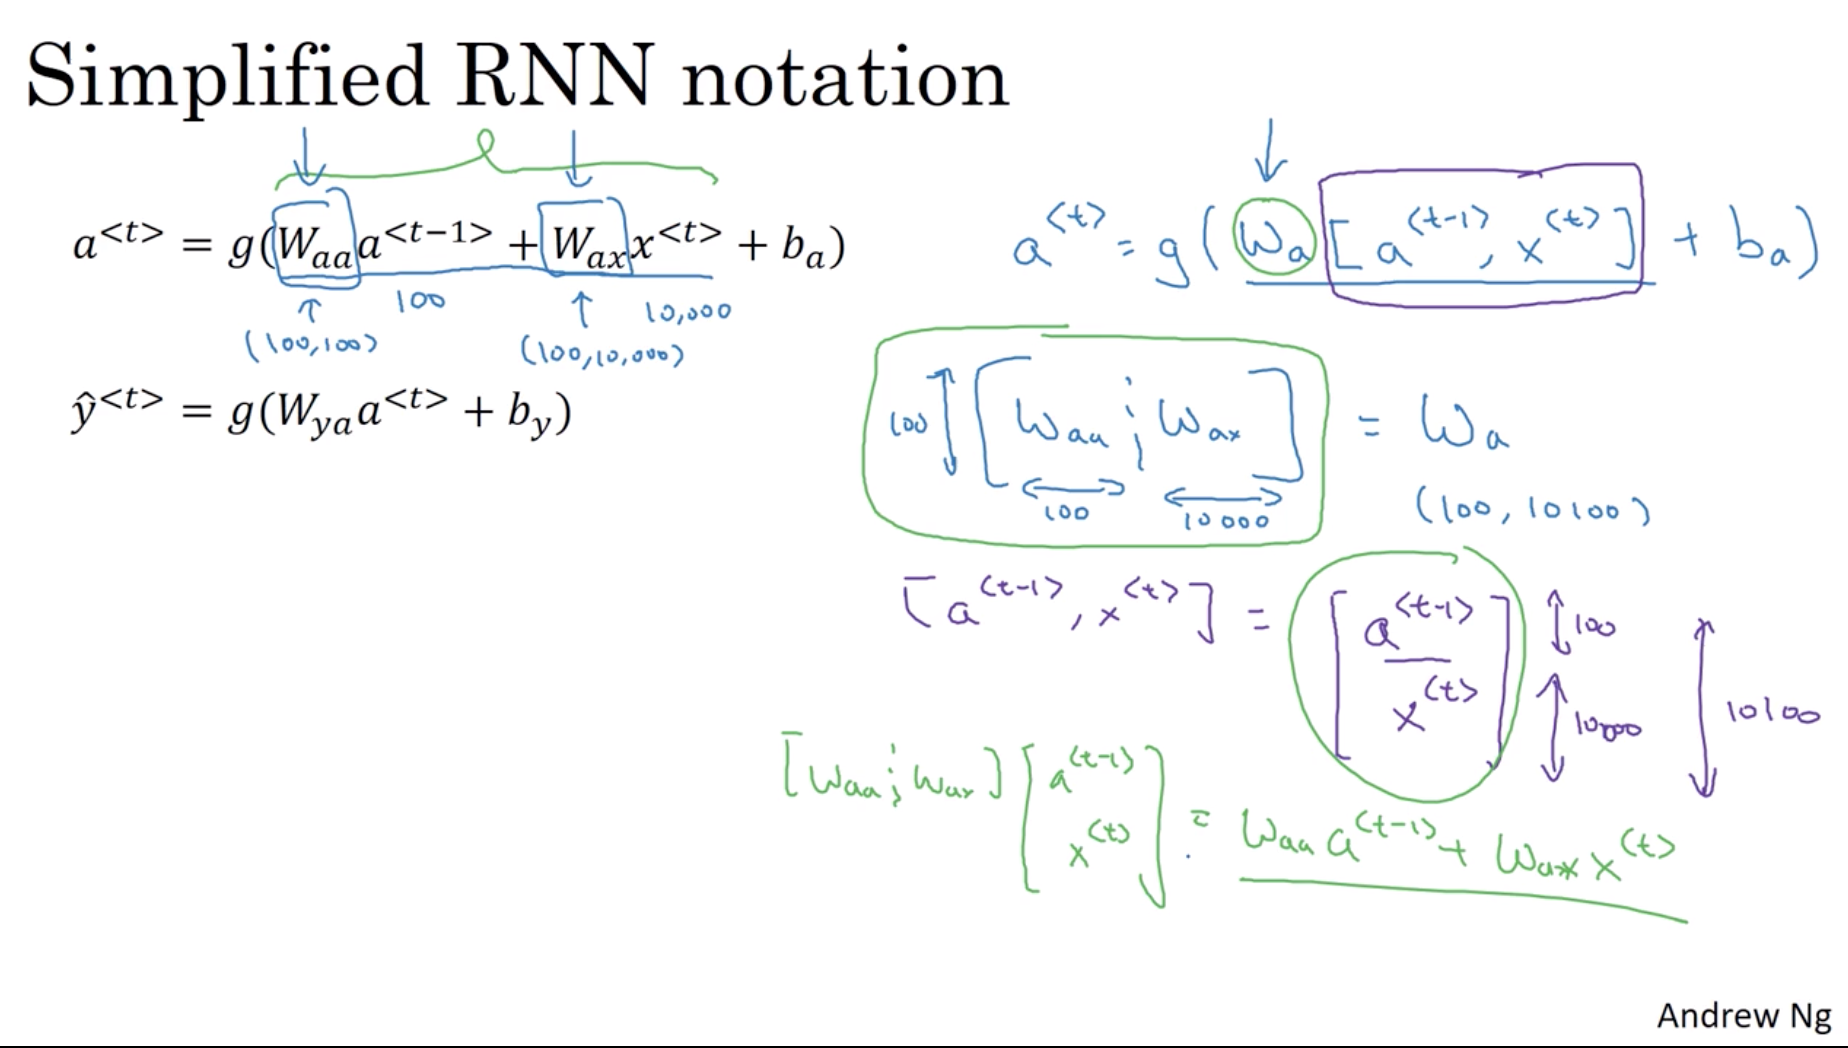 Simplified RNN notation
a<t> = g(Waa a<t−1> + Wax x<t> + ba)
100 10,000
(100,100) (100,10,000)
ŷ<t> = g(Wya a<t> + by)
a<t> = g(Wa [a<t-1>, x<t>] + ba)
100 [Waa ; Wax] = Wa
100 10000 (100, 10100)
[a<t-1>, x<t>] = [a<t-1> 100
x<t>] 10000 10100
[Waa ; Wax] [a<t-1>
x<t>] = Waa a<t-1> + Wax x<t>
Andrew Ng